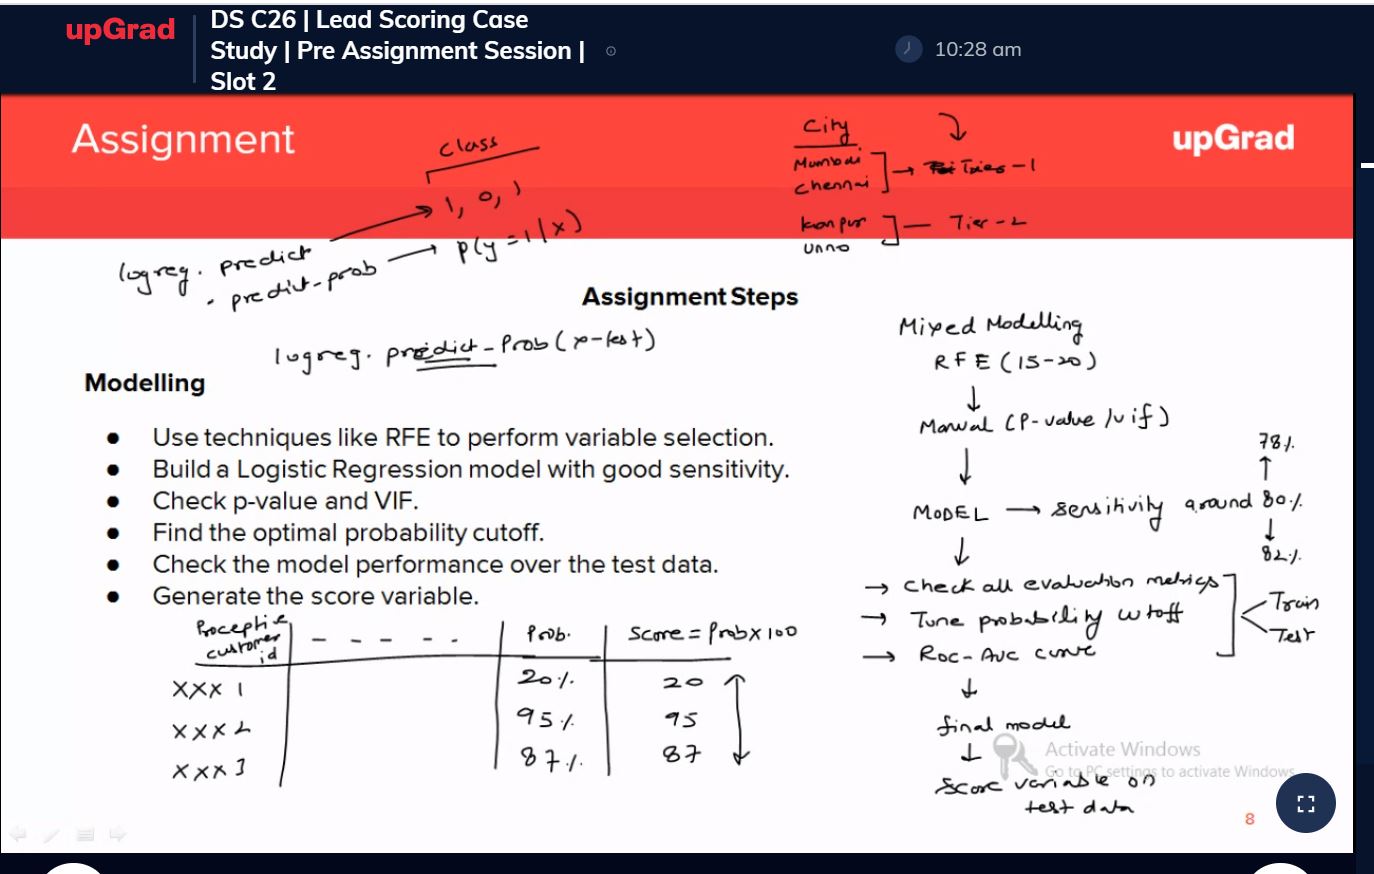 upGrad
DS C26 | Lead Scoring Case
Study | Pre Assignment Session |
Slot 2
10:28 am
Assignment
upGrad
class
1, 0, 1
logreg. predict
. predict-prob
p(y=1/x)
City
Mumbai
Chennai
Tier-2
logreg. predict-Prob(x-test)
Assignment Steps
Modelling
● Use techniques like RFE to perform variable selection.
● Build a Logistic Regression model with good sensitivity.
● Check p-value and VIF.
● Find the optimal probability cutoff.
● Check the model performance over the test data.
● Generate the score variable.
customer
id
- - - - -
Prob.
Score = Prob x 100
XXX 1
20%
20
XXX 2
95%
95
XXX 3
87%
87
Mixed Modelling
RFE (15-20)
Manual (P-value/vif)
MODEL → sensitivity around 80%
78%
82%
→ Check all evaluation metrics
→ Tune probability cutoff
→ Roc-Auc curve
Train
Test
final model
Score variable on
test data
Activate Windows
Go to PC settings to activate Windows.
8